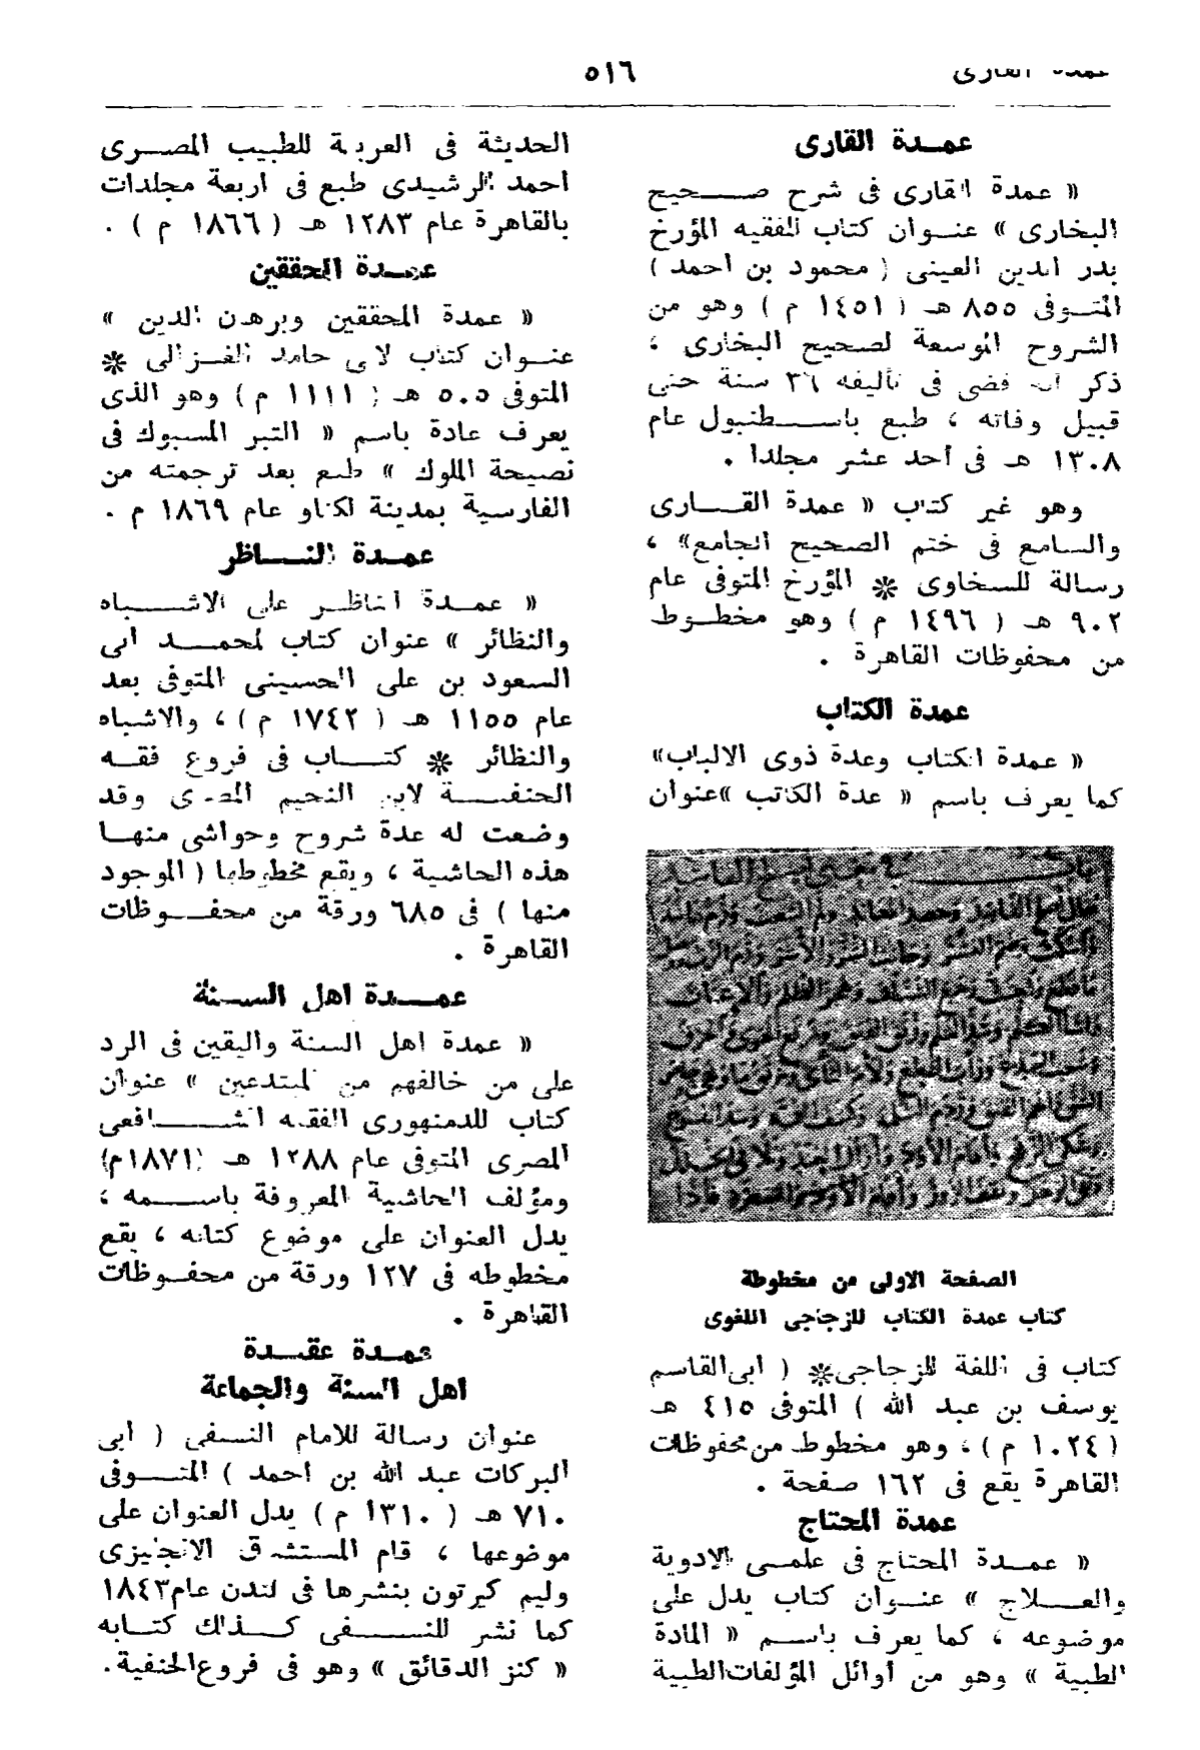 عمدة القارى
٥١٦
عمـدة القارى
« عمدة القارى فى شرح صـــحيح
البخارى » عنـوان كتاب للفقيه المؤرخ
بدر الدين العينى ( محمود بن أحمد )
المتـوفى ٨٥٥ هـ ( ١٤٥١ م ) وهو من
الشروح الموسعة لصحيح البخارى ؛
ذكر أنه قضى فى تأليفه ٢٦ سنة حتى
قبيل وفاته ، طبع باســـطنبول عام
١٣٠٨ هـ فى أحد عشر مجلدا .
وهو غير كتاب « عمدة القــارى
والسامع فى ختم الصحيح الجامع» ،
رسالة للسخاوى * المؤرخ المتوفى عام
٩٠٢ هـ ( ١٤٩٦ م ) وهو مخطـوط
من محفوظات القاهرة .
عمدة الكتاب
« عمدة الكتاب وعدة ذوى الالباب»
كما يعرف باسم « عدة الكاتب »عنوان
الصفحة الاولى من مخطوطة
كتاب عمدة الكتاب للزجاجى اللغوى
كتاب فى اللغة للزجاجى* ( ابى القاسم
يوسف بن عبد الله ) المتوفى ٤١٥ هـ
( ١٠٢٤ م ) ، وهو مخطوط من محفوظات
القاهرة يقع فى ١٦٢ صفحة .
عمدة المحتاج
« عمـدة المحتاج فى علمـى الادوية
والعـــلاج » عنـوان كتاب يدل على
موضوعه ، كما يعرف باسـم « المادة
الطبية » وهو من أوائل المؤلفات الطبية
الحديثة فى العربية للطبيب المصـرى
أحمد الرشيدى طبع فى أربعة مجلدات
بالقاهرة عام ١٢٨٣ هـ ( ١٨٦٦ م ) .
عمـدة المحققين
« عمدة المحققين وبرهن الدين »
عنـوان كتاب لابى حامد الغـزالى *
المتوفى ٥٠٥ هـ ( ١١١١ م ) وهو الذى
يعرف عادة باسم « التبر المسبوك فى
نصيحة الملوك » طبع بعد ترجمته من
الفارسية بمدينة لكناو عام ١٨٦٩ م .
عمـدة النــاظر
« عمـدة الناظـر على الاشــباه
والنظائر » عنوان كتاب لمحمــد ابى
السعود بن على الحسينى المتوفى بعد
عام ١١٥٥ هـ ( ١٧٤٢ م ) ، والاشباه
والنظائر * كتــاب فى فروع فقـه
الحنفيــة لابن النجيم المصرى وقد
وضعت له عدة شروح وحواشى منهـا
هذه الحاشية ، ويقع مخطوطها ( الموجود
منها ) فى ٦٨٥ ورقة من محفــوظات
القاهرة .
عمــدة اهل السـنة
« عمدة اهل السنة واليقين فى الرد
على من خالفهم من المبتدعين » عنوان
كتاب للدمنهورى الفقيه الشــافعى
المصرى المتوفى عام ١٢٨٨ هـ (١٨٧١م)
ومؤلف الحاشية المعروفة باســمه ،
يدل العنوان على موضوع كتابه ، يقع
مخطوطه فى ١٢٧ ورقة من محفـوظات
القاهرة .
عمـدة عقيـدة
اهل السنة والجماعة
عنوان رسالة للامام النسفى ( أبى
البركات عبد الله بن احمد ) المتــوفى
٧١٠ هـ ( ١٣١٠ م ) يدل العنوان على
موضوعها ، قام المستشرق الانجليزى
وليم كيرتون بنشرها فى لندن عام١٨٤٣
كما نشر للنســـفى كــذلك كتــابه
« كنز الدقائق » وهو فى فروع الحنفية .